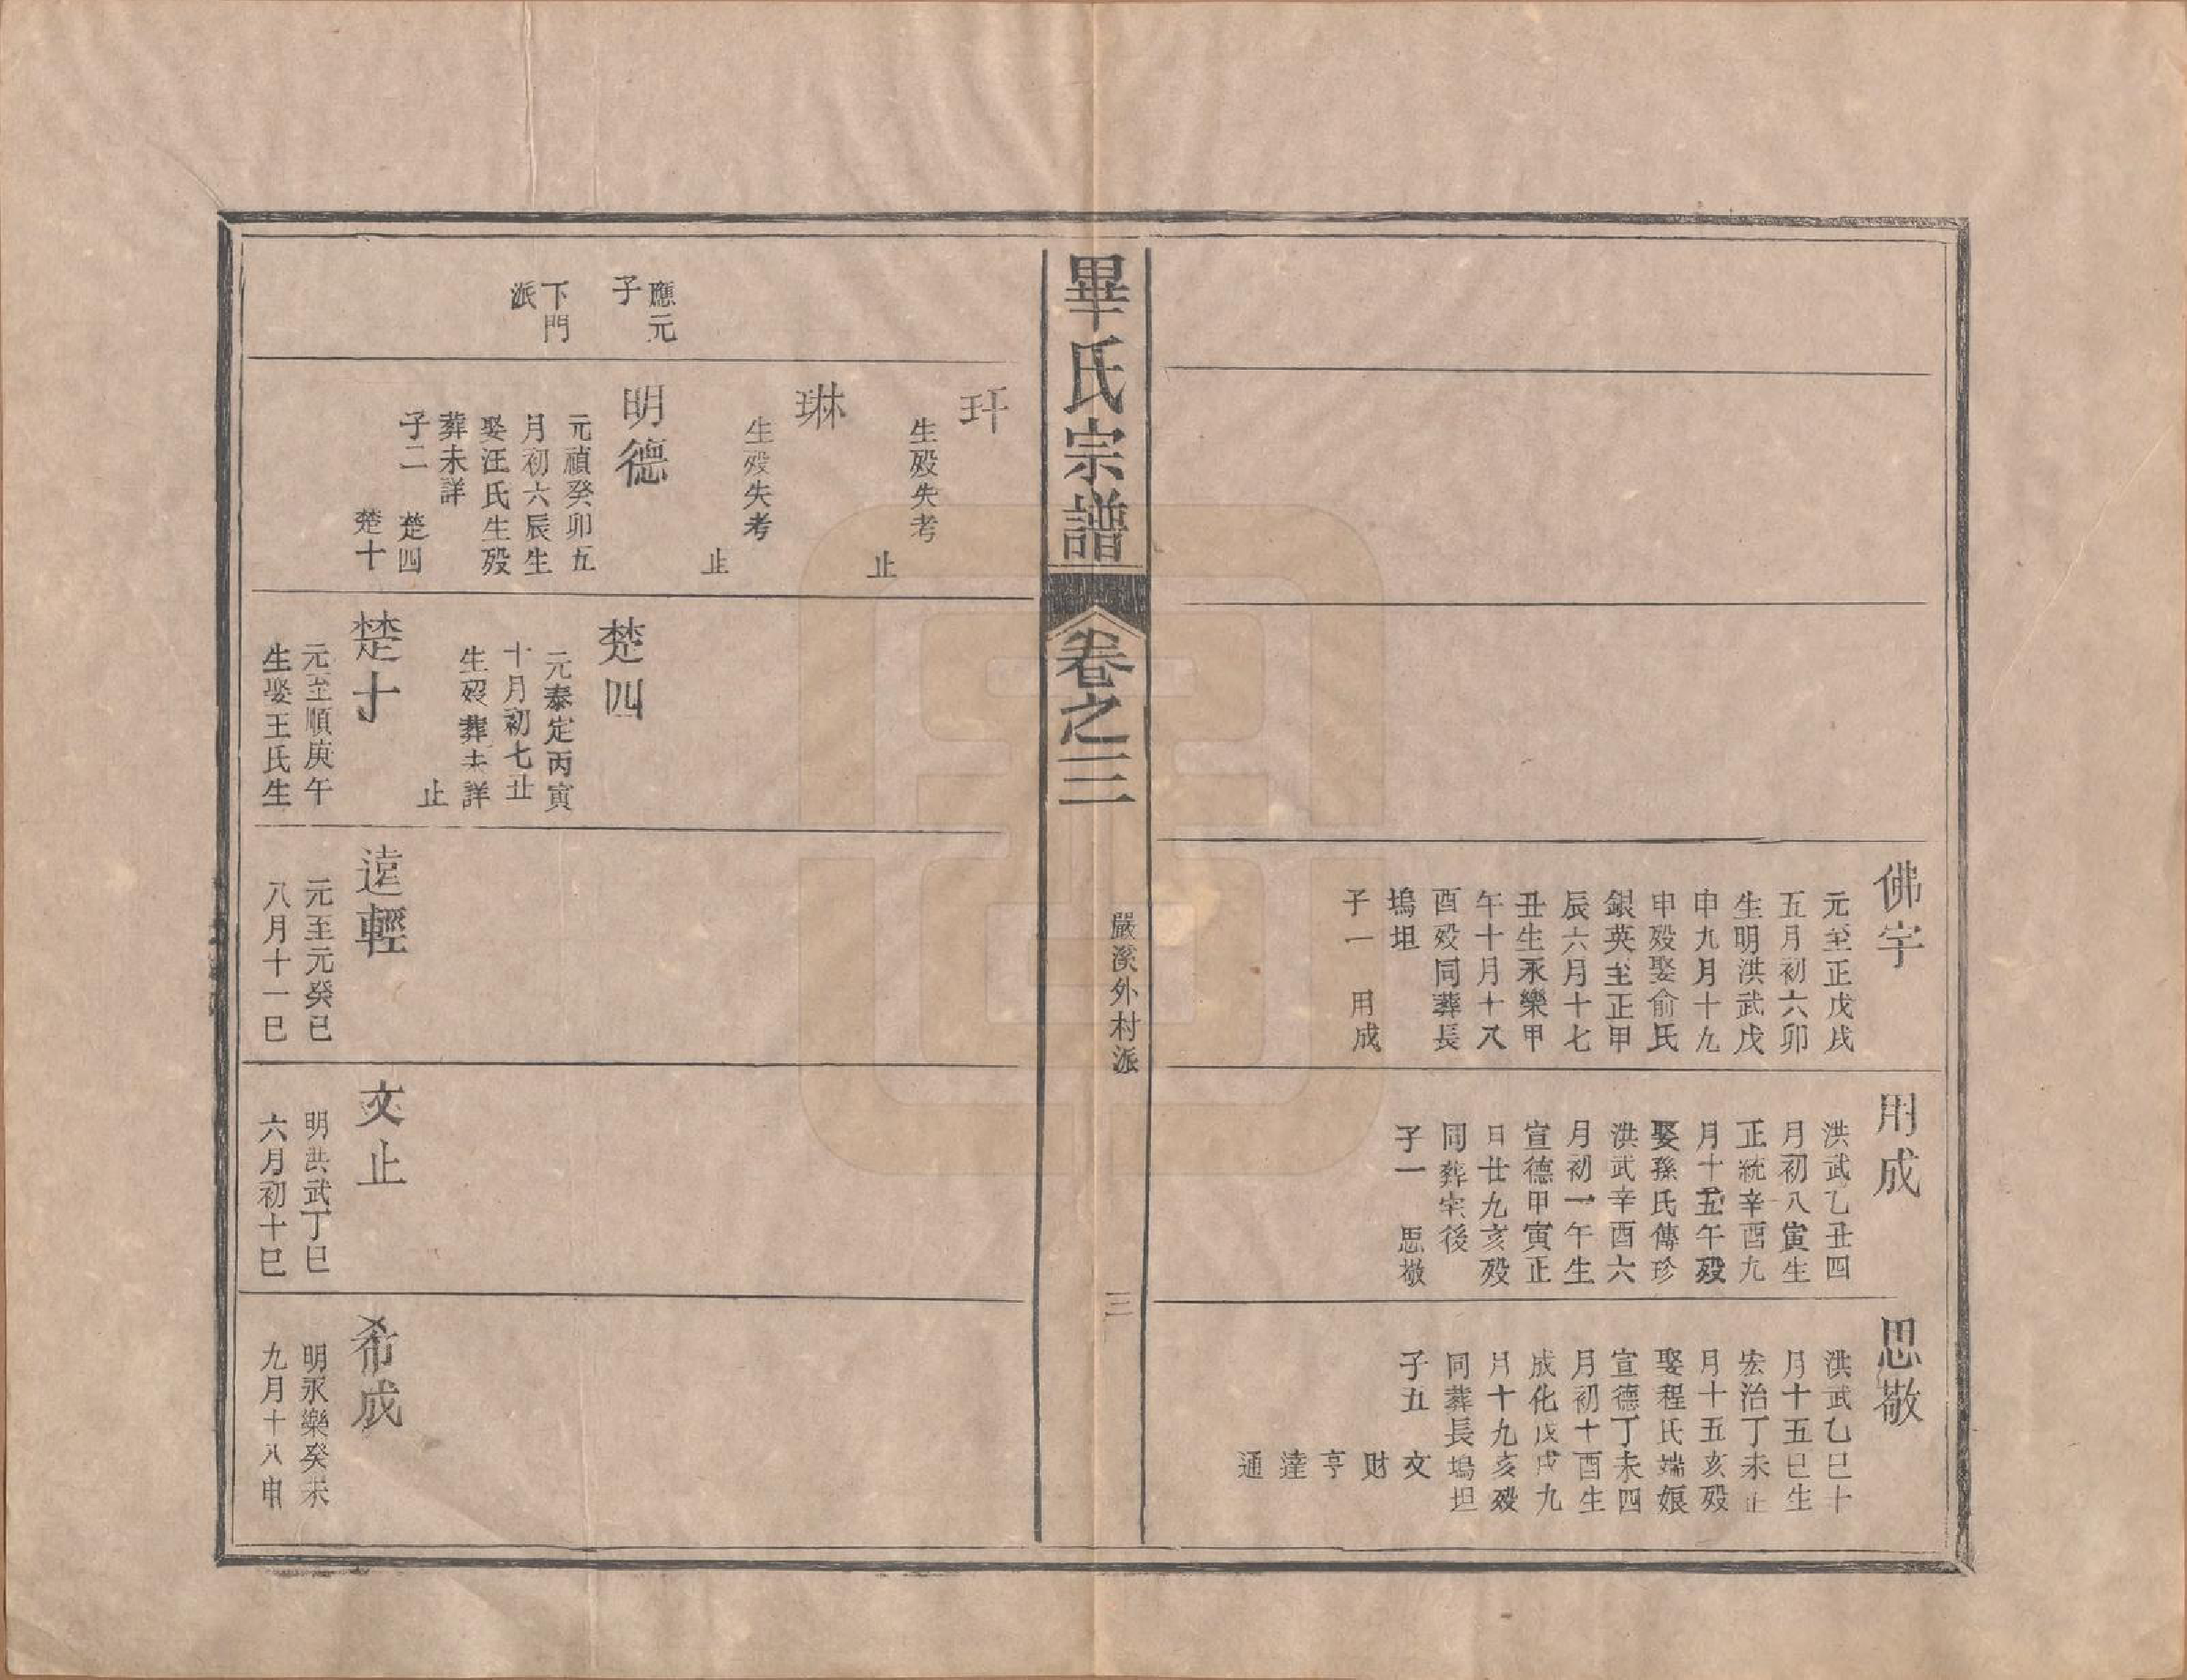 佛宇
元至正戊戌
五月初六卯
生明洪武戊
申九月十九
申殁娶俞氏
銀英至正甲
辰六月十七
丑生永樂甲
午十月十八
酉殁同葬長
塢坦
子一　用成
用成
洪武乙丑四
月初八寅生
正統辛酉九
月十五午殁
娶孫氏傳珍
洪武辛酉六
月初一午生
宣德甲寅正
月廿九亥殁
同葬宅後
子一　思敬
思敬
洪武乙巳十
月十五巳生
宏治丁未正
月十五亥殁
娶程氏端娘
宣德丁未四
月初十酉生
成化戊戌九
月十九亥殁
同葬長塢坦
子五　文
財
亨
達
通
畢氏宗譜
卷之三
嚴溪外村派
三
玕
生殁失考
止
琳
生殁失考
止
應元
子
下門
派
明德
元禎癸卯五
月初六辰生
娶汪氏生殁
葬未詳
子二　楚四
楚十
楚四
元泰定丙寅
十月初七丑
生殁葬未詳
止
楚十
元至順庚午
生娶王氏生
遠輕
元至元癸巳
八月十一巳
文止
明洪武丁巳
六月初十巳
希成
明永樂癸未
九月十八申